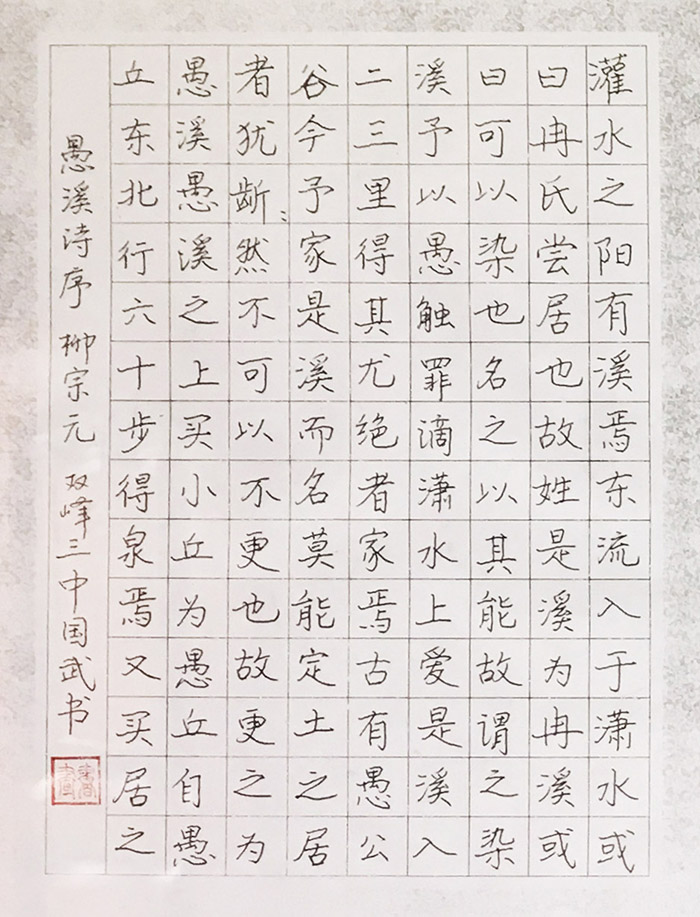 灌水之阳有溪焉东流入于潇水或
曰冉氏尝居也故姓是溪为冉溪或
曰可以染也名之以其能故谓之染
溪予以愚触罪谪潇水上爱是溪入
二三里得其尤绝者家焉古有愚公
谷今予家是溪而名莫能定土之居
者犹龂〻然不可以不更也故更之为
愚溪愚溪之上买小丘为愚丘自愚
丘东北行六十步得泉焉又买居之
愚溪诗序 柳宗元 双峰三中国武书